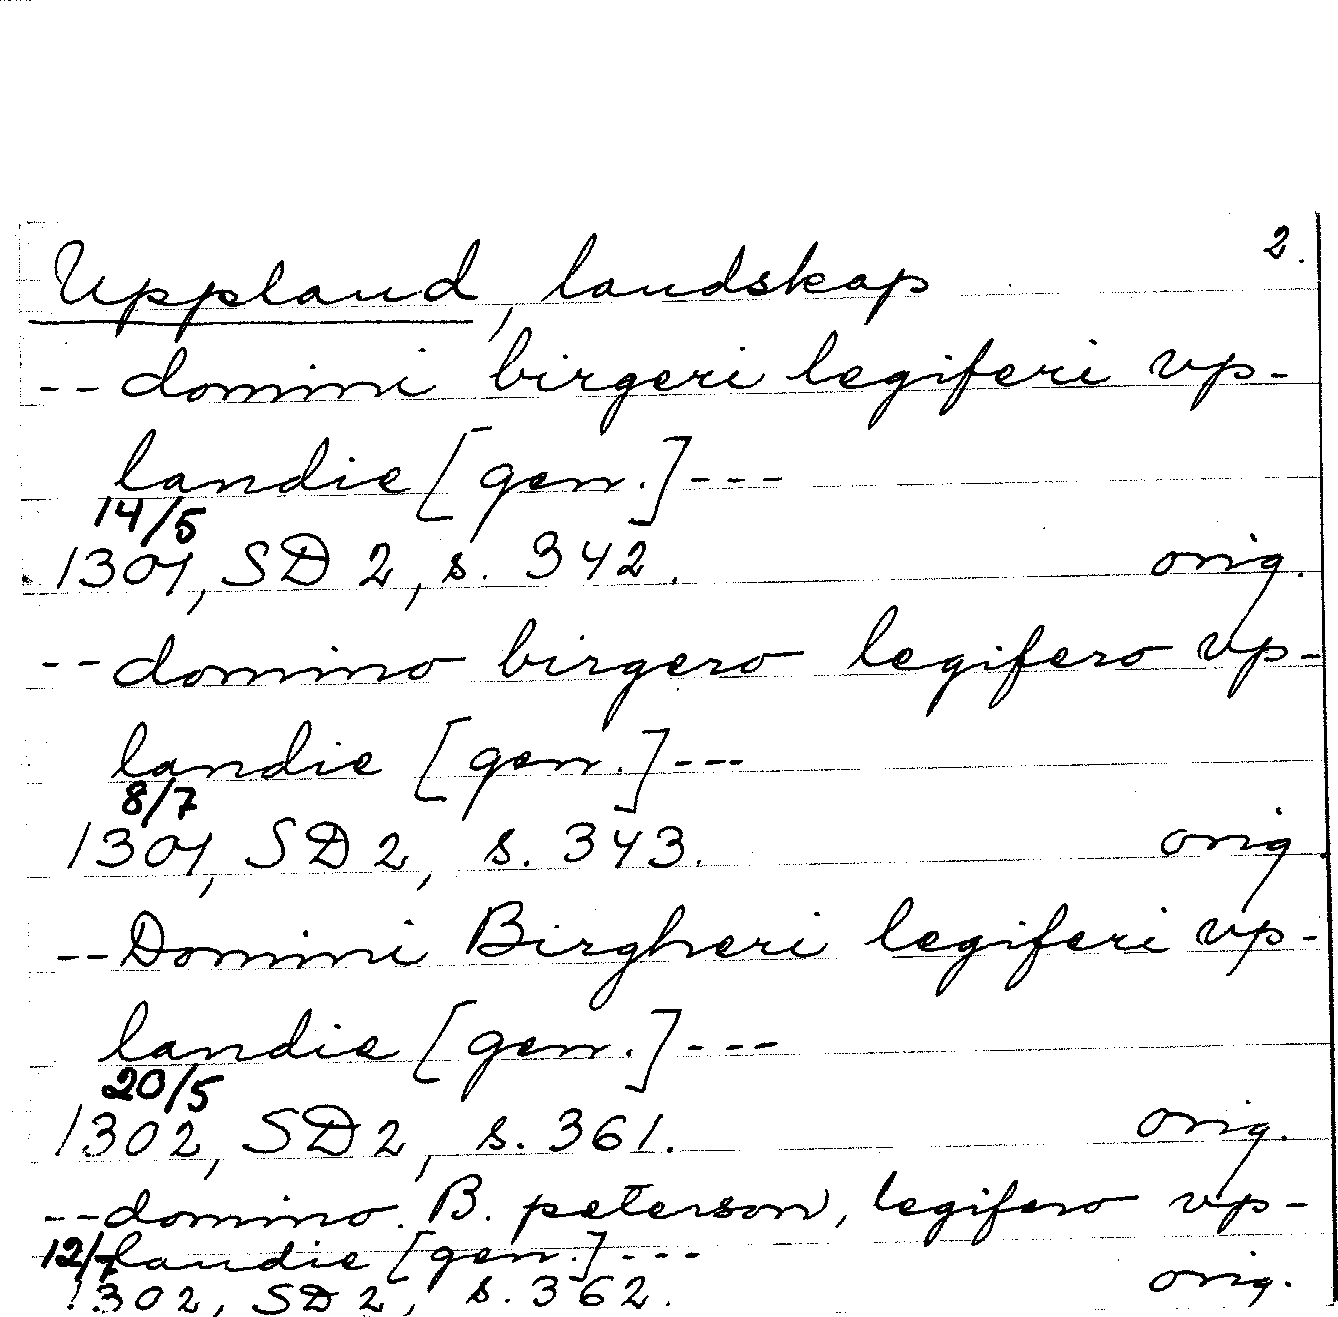 2.
Uppland, landskap
-- domini birgeri legiferi vp-
landie [gen.] ---
14/5
1301, SD 2, s. 342. orig.
-- domino birgero legifero vp-
landie [gen.] ---
8/7
1301, SD 2, s. 343. orig.
-- Domini Birgheri legiferi vp-
landie [gen.] ---
20/5
1302, SD 2, s. 361. orig.
-- domino. B. peterson, legifero vp-
12/7 landie [gen.] ---
1302, SD 2, s. 362. orig.